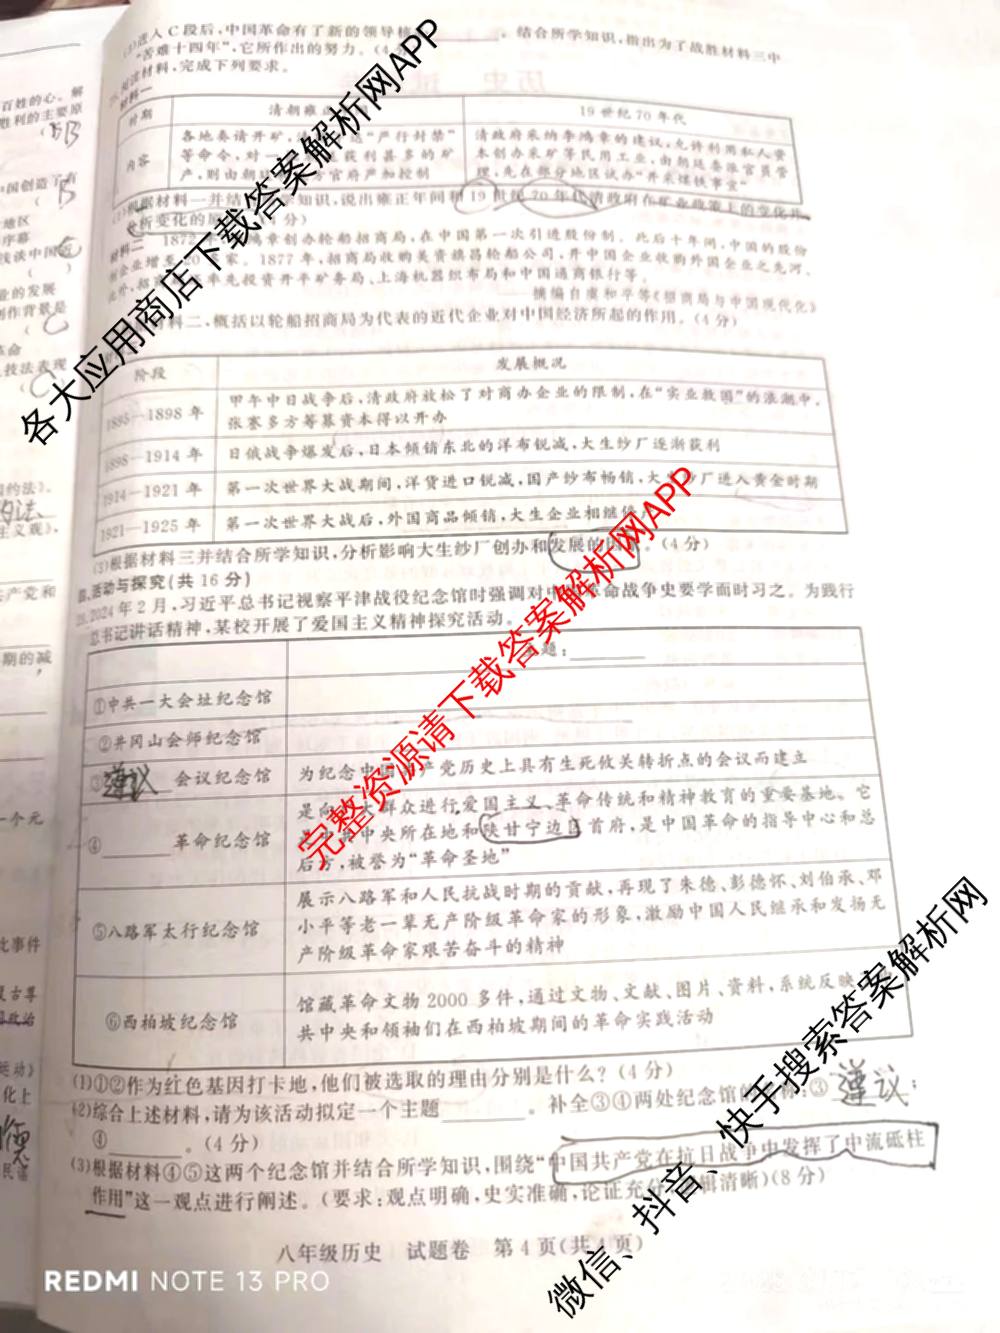 (3)进入C段后,中国革命有了新的领导核 。结合所学知识,指出为了战胜材料三中
“苦难十四年”,它所作出的努力。(4
阅读材料,完成下列要求。
材料一
时期 清朝雍 19世纪70年代
内容 各地奏请开矿, “严行封禁” 清政府采纳李鸿章的建议,允许利用私人资
等命令,对 获利甚多的矿 本创办采矿等民用工业,由朝廷委派官员管
产,则由朝 官府严加控制 理,先在部分地区试办“开采煤铁事宜”
(1)根据材料一并结合所学知识,说出雍正年间和19世纪70年代清政府在矿业政策上的变化并
分析变化的原 4分)
材料二 1872年 鸿章创办轮船招商局,在中国第一次引进股份制。此后十年间,中国的股份
制企业增至20 家。1877年,招商局收购美资旗昌轮船公司,开中国企业收购外国企业之先河。
此外,招商 率先投资开平矿务局、上海机器织布局和中国通商银行等。
摘编自虞和平等《招商局与中国现代化》
材料二,概括以轮船招商局为代表的近代企业对中国经济所起的作用。(4分)
阶段 发展概况
1895—1898年 甲午中日战争后,清政府放松了对商办企业的限制,在“实业救国”的浪潮中,
张謇多方筹募资本得以开办
1898—1914年 日俄战争爆发后,日本倾销东北的洋布锐减,大生纱厂逐渐获利
1914—1921年 第一次世界大战期间,洋货进口锐减,国产纱布畅销,大生纱厂进入黄金时期
1921—1925年 第一次世界大战后,外国商品倾销,大生企业相继
(3)根据材料三并结合所学知识,分析影响大生纱厂创办和发展的因素。(4分)
四、活动与探究(共16分)
2024年2月,习近平总书记视察平津战役纪念馆时强调对中 革命战争史要学而时习之。为践行
总书记讲话精神,某校开展了爱国主义精神探究活动。
题:
①中共一大会址纪念馆
②井冈山会师纪念馆
③遵议 会议纪念馆 为纪念中国共产党历史上具有生死攸关转折点的会议而建立
④ 革命纪念馆 是向 大群众进行爱国主义、革命传统和精神教育的重要基地。它
是中共中央所在地和陕甘宁边区首府,是中国革命的指导中心和总
后方,被誉为“革命圣地”
⑤八路军太行纪念馆 展示八路军和人民抗战时期的贡献,再现了朱德、彭德怀、刘伯承、邓
小平等老一辈无产阶级革命家的形象,激励中国人民继承和发扬无
产阶级革命家艰苦奋斗的精神
⑥西柏坡纪念馆 馆藏革命文物2000多件,通过文物、文献、图片、资料,系统反映
共中央和领袖们在西柏坡期间的革命实践活动
(1)①②作为红色基因打卡地,他们被选取的理由分别是什么?(4分)
(2)综合上述材料,请为该活动拟定一个主题 。补全③④两处纪念馆的 称:③ 遵议 ;
④ 。(4分)
(3)根据材料④⑤这两个纪念馆并结合所学知识,围绕“中国共产党在抗日战争中发挥了中流砥柱
作用”这一观点进行阐述。(要求:观点明确,史实准确,论证充分, 辑清晰)(8分)
八年级历史 试题卷 第4页(共4页)
REDMI NOTE 13 PRO
各大应用商店下载答案解析网APP
完整资源请下载答案解析网APP
微信、抖音、快手搜索答案解析网